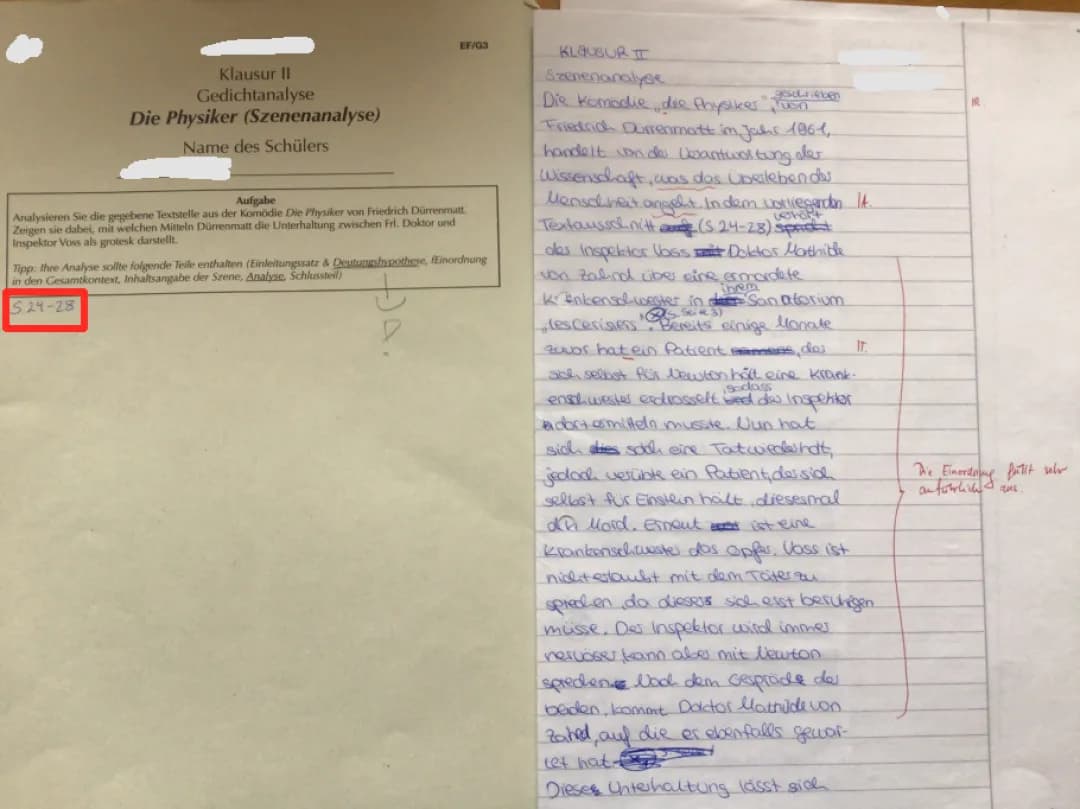 EF/G3
Klausur II
Gedichtanalyse
Die Physiker (Szenenanalyse)
Name des Schülers
Aufgabe
Analysieren Sie die gegebene Textstelle aus der Komödie Die Physiker von Friedrich Dürrenmatt.
Zeigen sie dabei, mit welchen Mitteln Dürrenmatt die Unterhaltung zwischen Frl. Doktor und
Inspektor Voss als grotesk darstellt.
Tipp: Ihre Analyse sollte folgende Teile enthalten (Einleitungssatz & Deutungshypothese, fEinordnung
in den Gesamtkontext, Inhaltsangabe der Szene, Analyse, Schlussteil)
S.24-28
KLAUSUR II
Szenenanalyse
Die Komödie „die Physiker", geschrieben von
Friedrich Dürrenmatt im Jahr 1961,
handelt von der Verantwortung der
Wissenschaft, was das Überleben der
Menschheit angeht. In dem vorliegenden
Textausschnitt (S.24-28) verhört
der Inspektor Voss Doktor Mathilde
von Zahnd über eine ermordete
Krankenschwester in ihrem Sanatorium
„les Cerisiers". (s. Seite 3) Bereits einige Monate
zuvor hat ein Patient, der
sich selbst für Newton hält eine Krank-
enschwester erdrosselt sodass der Inspektor
dort ermitteln musste. Nun hat
sich solch eine Tat wiederholt,
jedoch verübte ein Patient, der sich
selbst für Einstein hält, diesesmal
den Mord. Erneut ist eine
Krankenschwester das Opfer. Voss ist
nicht erlaubt mit dem Täter zu
sprechen, da dieser sich erst beruhigen
müsse. Der Inspektor wird immer
nervöser, kann aber mit Newton
sprechen. Nach dem Gespräch der
beiden, kommt Doktor Mathilde von
Zahnd, auf die er ebenfalls gewar-
tet hat.
Diese Unterhaltung lässt sich
Die Einordnung fällt sehr
ausführlich aus.